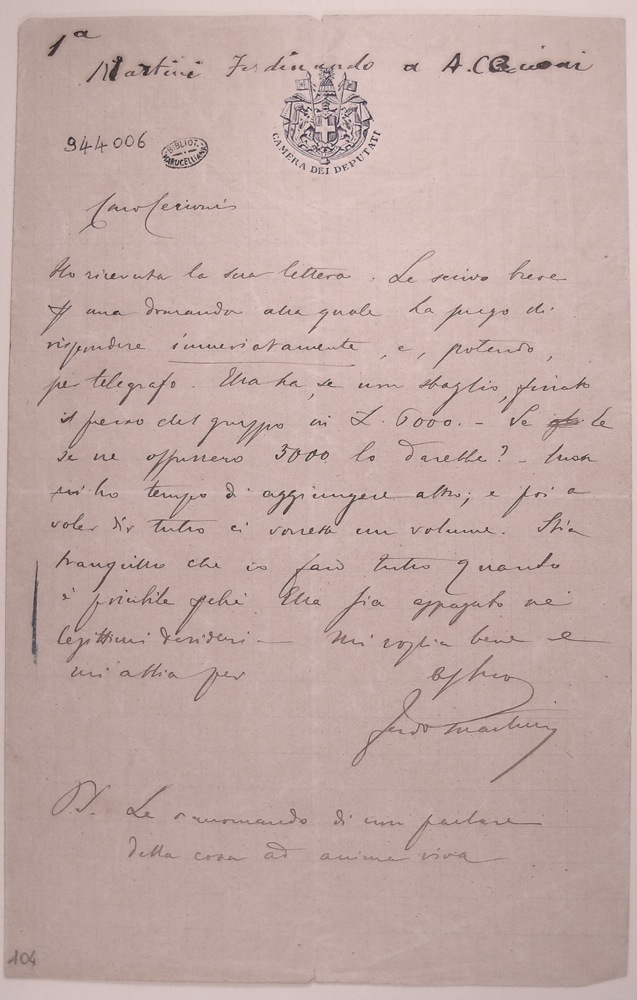 1ª
Martini Ferdinando a A. Cecioni
944006
BIBLIOT.
MARUCELLIANA
CAMERA DEI DEPUTATI
Caro Cecioni
Ho ricevuta la sua lettera. Le scrivo breve
una domanda alla quale la prego di
rispondere immediatamente, e, potendo,
per telegrafo. Ella ha, se non sbaglio, fissato
il prezzo del gruppo in L. 6000. — Se le
se ne offrissero 5000 lo darebbe? —
ho tempo di aggiungere altro; e poi a
voler dir tutto ci vorrebbe un volume. Stia
tranquillo che io farò tutto quanto
è possibile pché Ella sia appagato nei
legittimi desideri — Mi voglia bene e
mi abbia per
aff suo
Ferdo Martini
P.S. Le raccomando di non parlare
della cosa ad anima viva
104